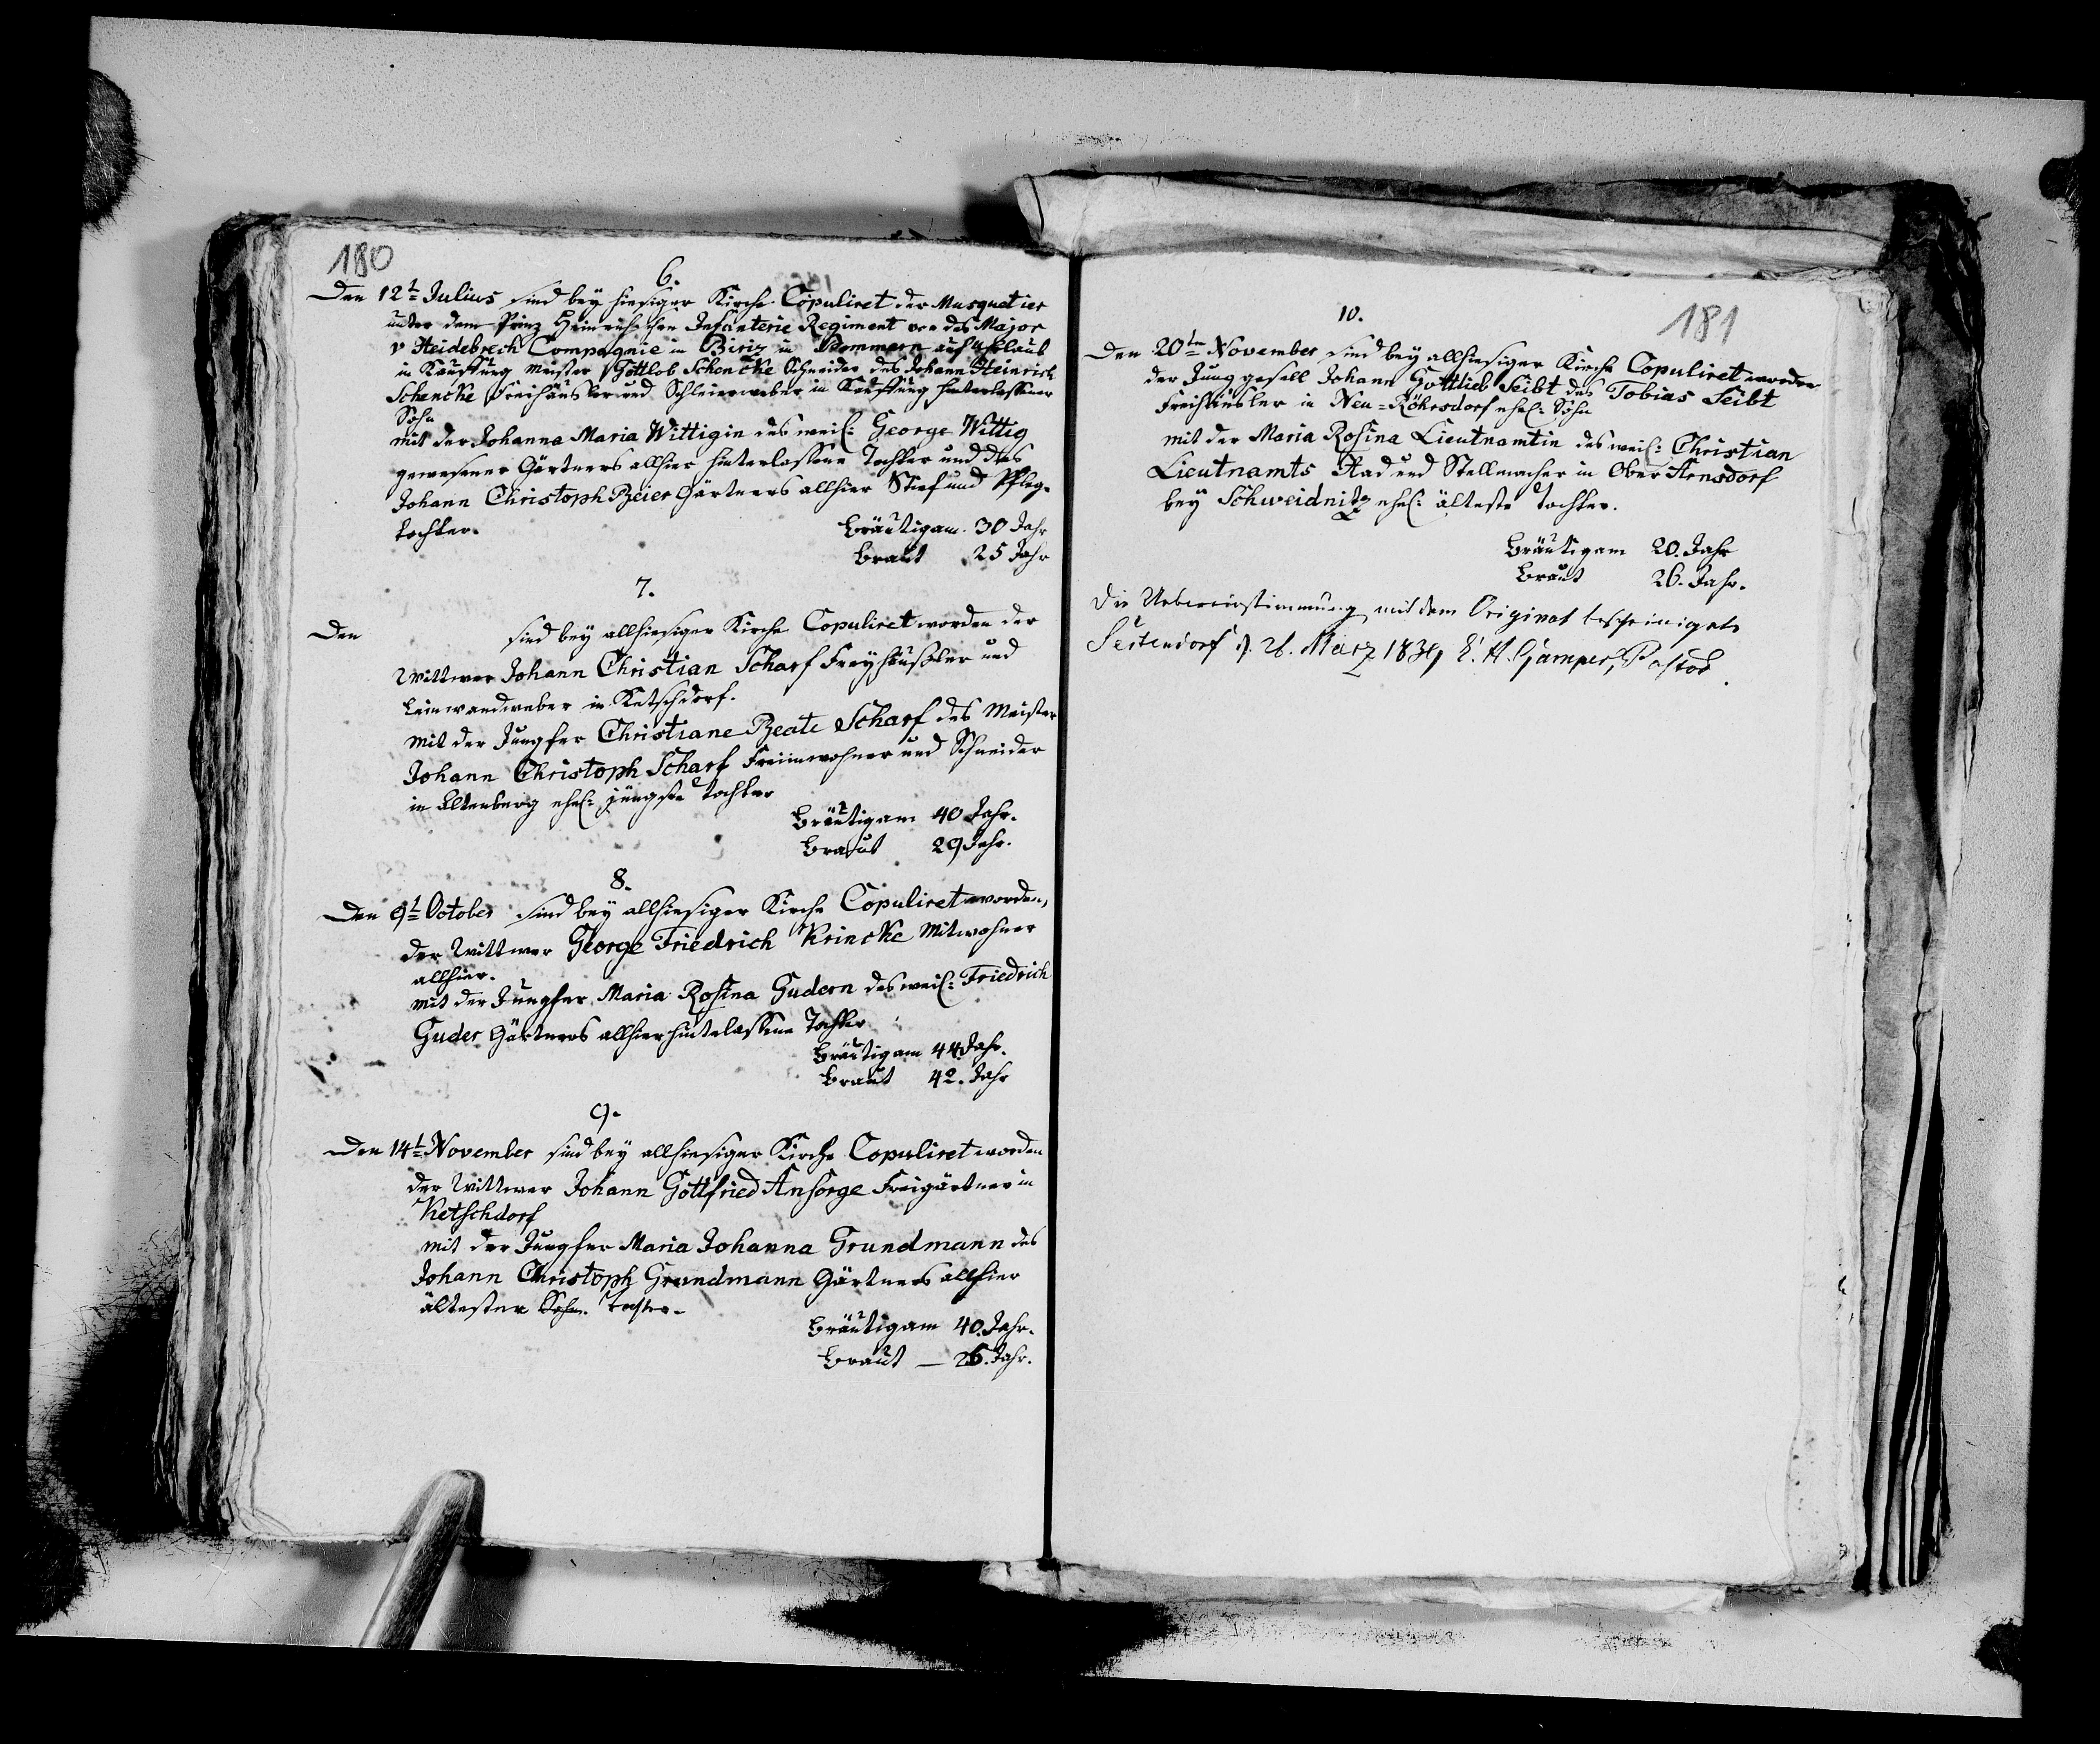 180
6.
Den 12t Julius sind bey hiesiger Kirche Copuliret der Musquetier
unter dem Prinz Heinrichschen Infanterie Regiment von des Major
v Heidebrech Compagnie in Biriz in Pommern auf Uhrlaub
in Kauffung Meister Gottlob Schencke Schneider des Johann Heinrich
Schencke Freihäusler und Schleierweber in Kauffung hinterlassener
Sohn
mit der Johanna Maria Wittigin des weil: George Wittig
gewesener Gärtners allhier hinterlassene Tochter und des
Johann Christoph Beier Gärtners allhier Stief und Pfleg-
tochter.
Bräutigam. 30 Jahr
Braut 25 Jahr
7.
Den sind bey allhiesiger Kirche Copuliret worden der
Wittwer Johann Christian Scharf Freyhäußler und
Leinwandweber in Ketschdorf.
mit der Jungfer Christiane Beate Scharf des Meister
Johann Christoph Scharf Freiinwohner und Schneider
in Altenberg ehel: jüngste Tochter
Bräutigam 40 Jahr.
Braut 29 Jahr.
8.
Den 9t October sind bey allhiesiger Kirche Copuliret worden,
der Wittwer George Friedrich Krincke Mitwohner
allhier.
mit der Jungfer Maria Rosina Gudern des weil: Friedrich
Guder Gärtners allhier hinterlassene Tochter
Bräutigam 44 Jahr.
Braut 42. Jahr
9.
Den 14t November sind bey allhiesiger Kirche Copuliret worden
der Wittwer Johann Gottfried Ansorge Freigärtner in
Ketschdorf
mit der Jungfer Maria Johanna Grundmann des
Johann Christoph Grundmann Gärtners allhier
ältesten Sohn. Tochter.
Bräutigam 40. Jahr.
Braut — 26. Jahr.
181
10.
Den 20tn November sind bey allhiesiger Kirche Copuliret worden
der Jung gesell Johann Gottlieb Seibt des Tobias Seibt
Freihäusler in Neu=Röhrsdorf ehel: Sohn
mit der Maria Rosina Lieutnamtin des weil: Christian
Lieutnamts Rad und Stellmacher in Ober Arnsdorf
bey Schweidnitz ehel: älteste Tochter.
Bräutigam 20. Jahr
Braut 26. Jahr.
Die Uebereinstimmung mit dem Original bescheiniget
Seitendorf d. 26. März 1839 E. H. Gamper, Pastor